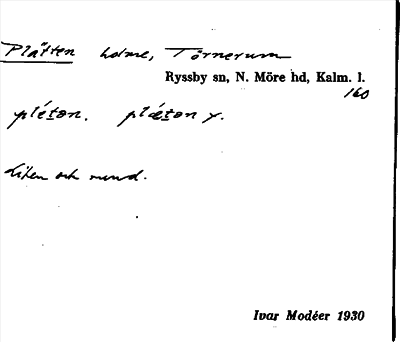 Plätten holme, Törnerum
Ryssby sn, N. Möre hd, Kalm. l.
160
plétən. plǽtən y.
Liten och rund.
Ivar Modéer 1930